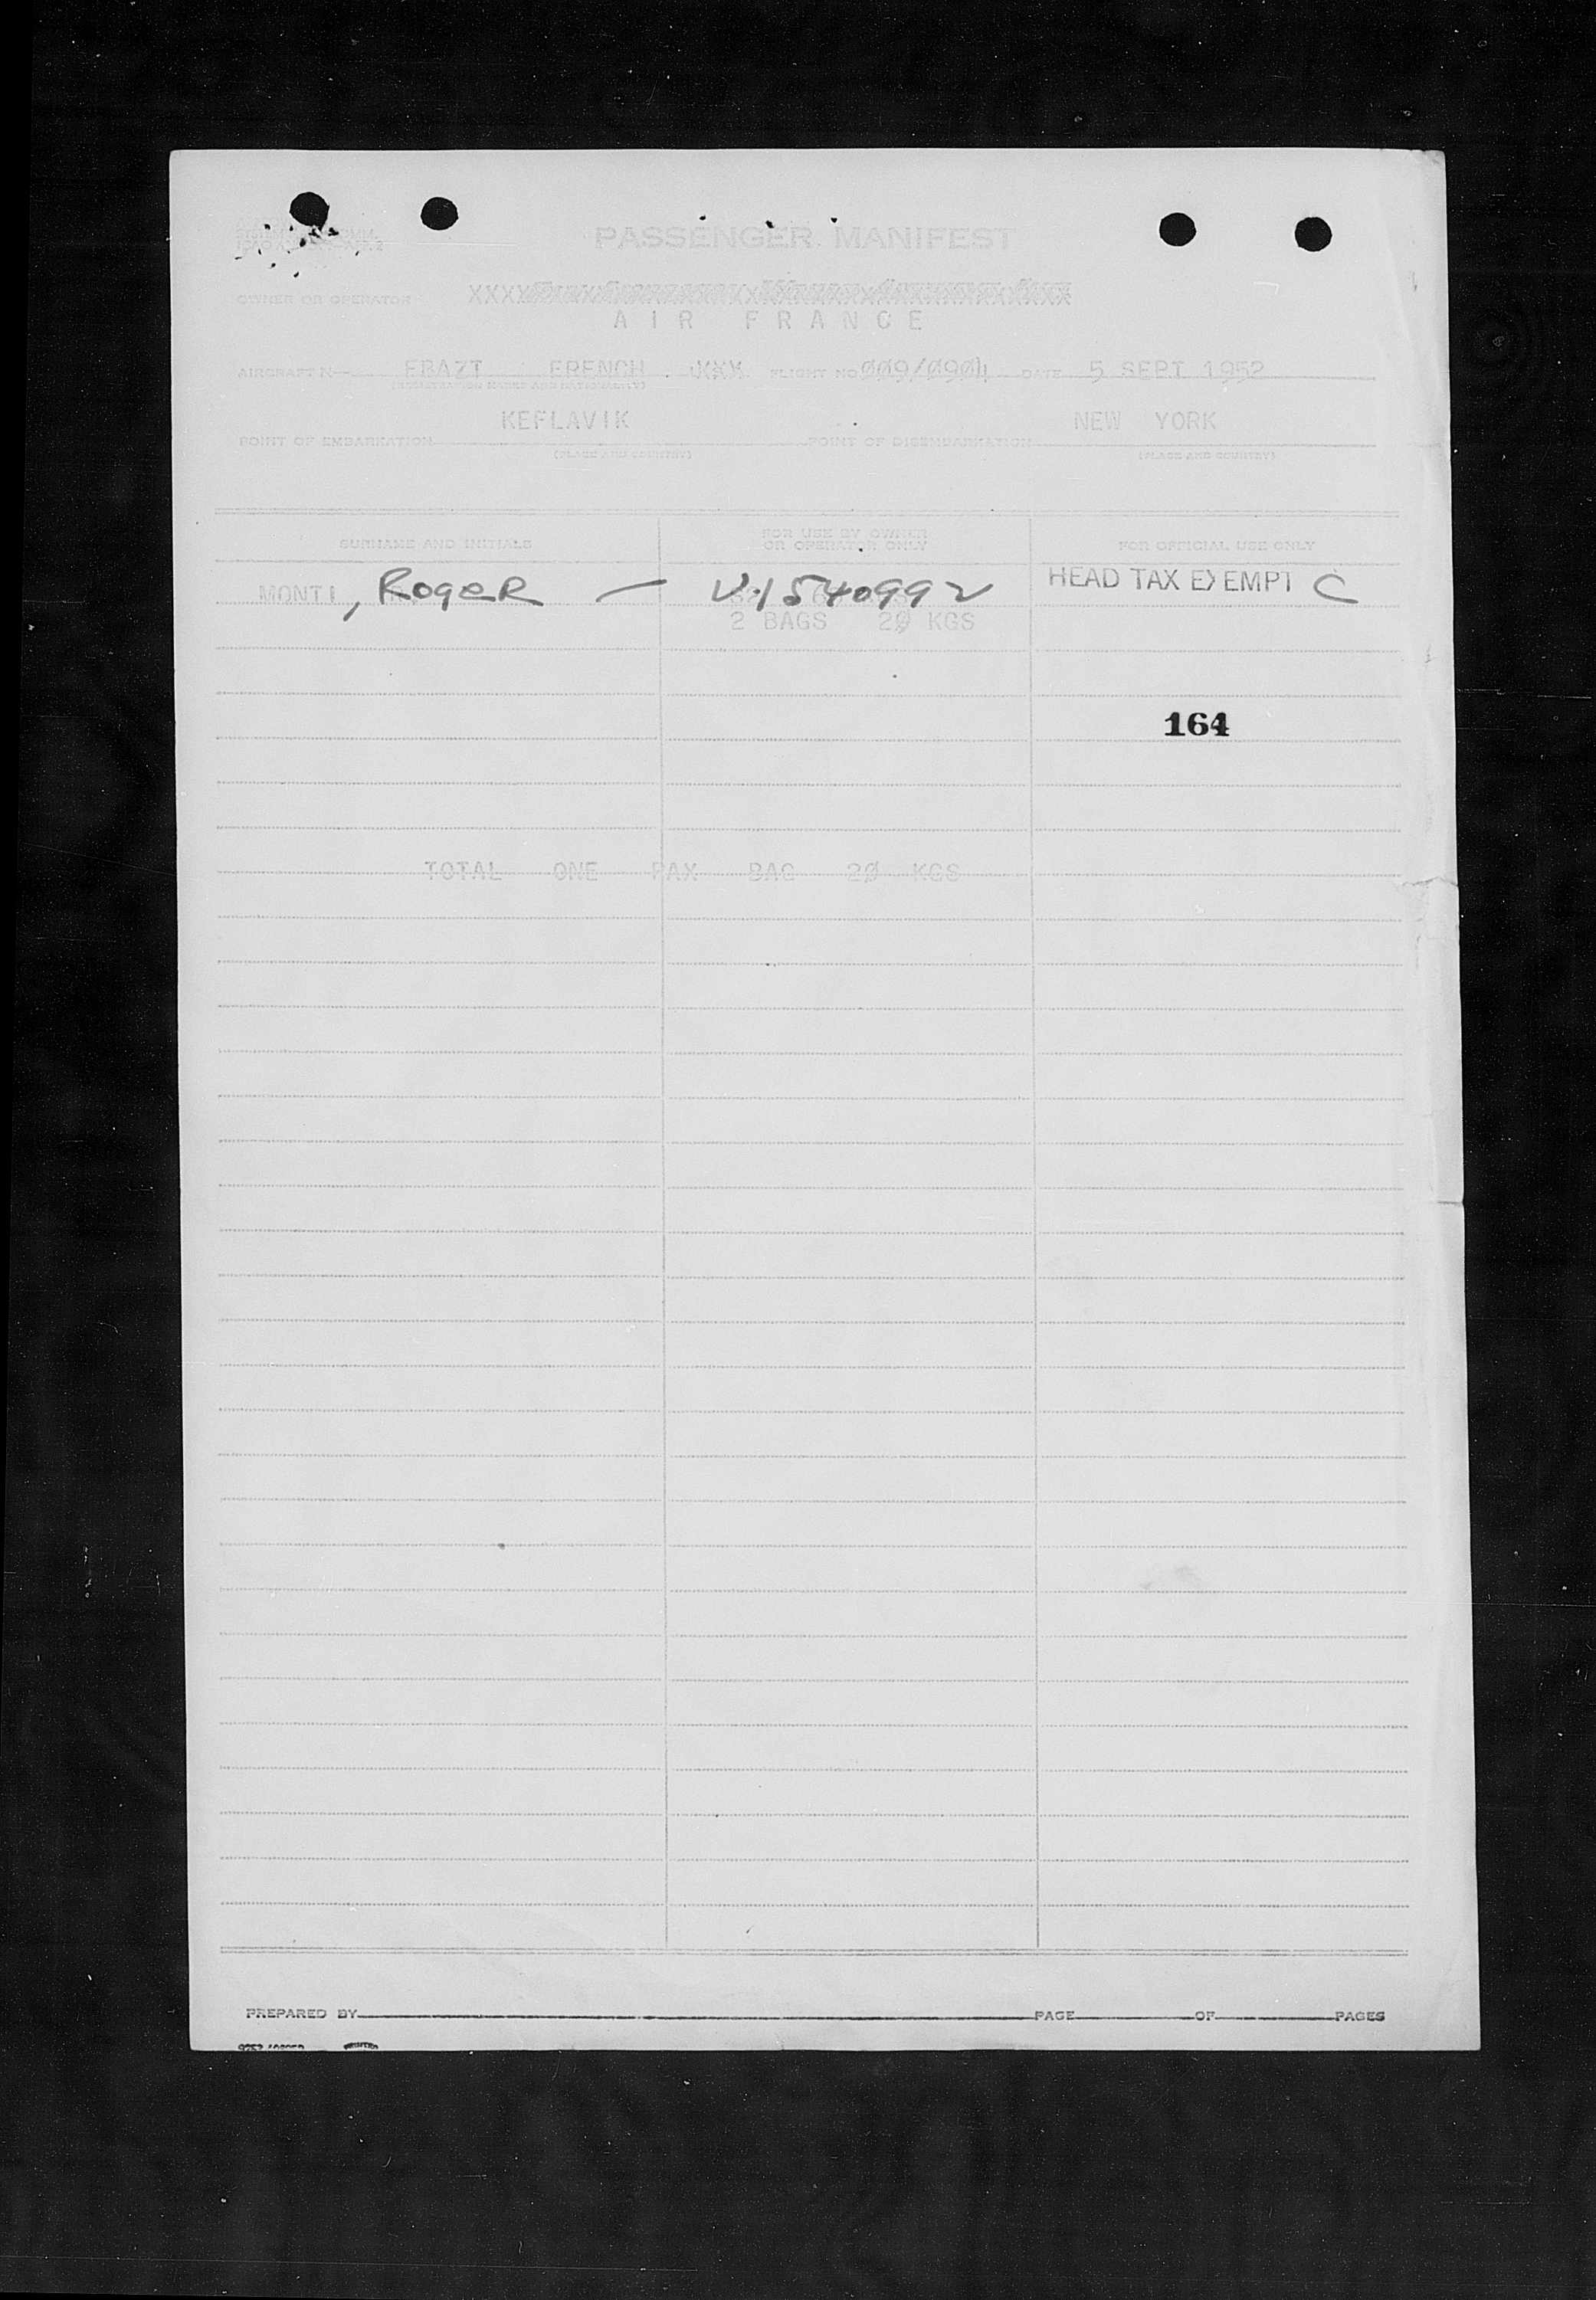 PASSENGER MANIFEST
OWNER OR OPERATOR
AIR FRANCE
AIRCRAFT N— FBAZT FRENCH XXX FLIGHT NO 009/0904 DATE 5 SEPT 1952
(REGISTRATION MARKS AND NATIONALITY)
KEFLAVIK NEW YORK
POINT OF EMBARKATION POINT OF DISEMBARKATION
(PLACE AND COUNTRY) (PLACE AND COUNTRY)
SURNAME AND INITIALS FOR USE BY OWNER OR OPERATOR ONLY FOR OFFICIAL USE ONLY
MONTI, RogeR — V.1540992 HEAD TAX EXEMPT C
2 BAGS 20 KGS
164
TOTAL ONE PAX BAG 20 KGS
PREPARED BY PAGE OF PAGES